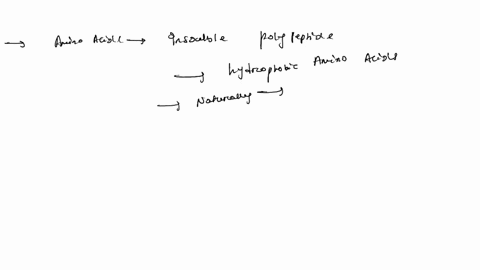 → Amino Acids → Insoluble polypeptide
→ hydrophobic Amino Acids
→ Naturally →